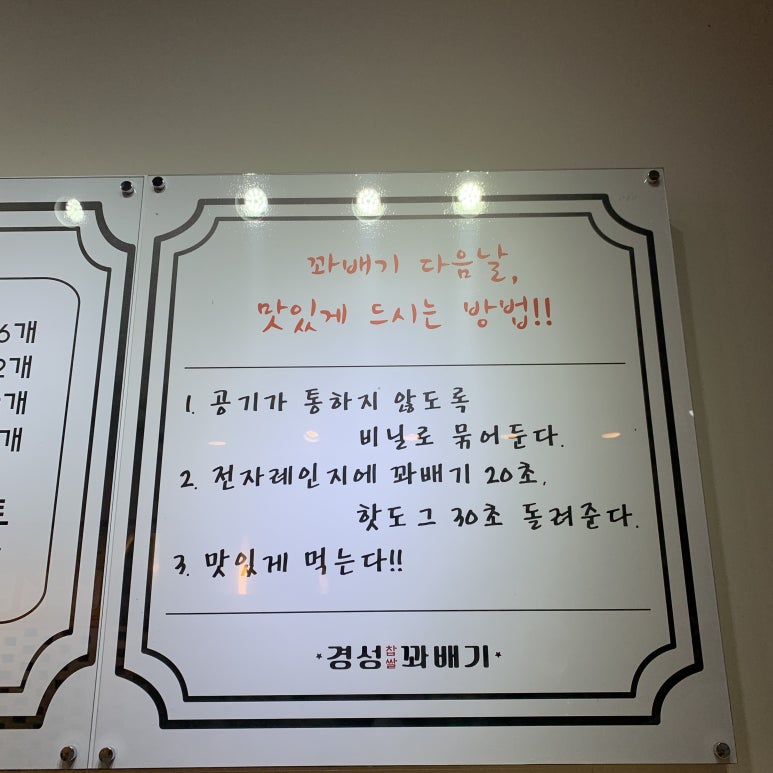 6개
2개
개
개
꽈배기 다음날,
맛있게 드시는 방법!!
1. 공기가 통하지 않도록
비닐로 묶어둔다.
2. 전자레인지에 꽈배기 20초,
핫도그 30초 돌려준다.
3. 맛있게 먹는다!!
경성찹쌀꽈배기